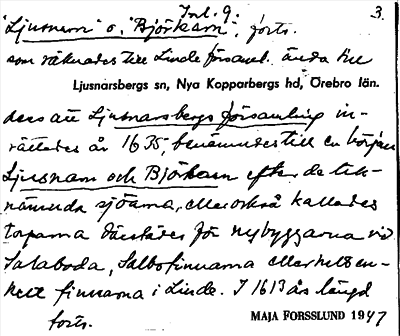 Inl. 9.
3.
"Ljusnern" o. "Björkarn", forts.
som räknades till Linde församl. ända till
Ljusnarsbergs sn, Nya Kopparbergs hd, Örebro län.
dess att Ljusnarsbergs församling in-
rättades år 1635, benämndes till en början
Ljusnarn och Björkarn efter de till-
nämnda sjöarna, eller också kallades
torparna därstädes för nybyggarna vid
Salaboda, Salbofinnarna eller helt en-
kelt finnarna i Linde. I 1613 års längd
forts.
MAJA FORSSLUND 1947